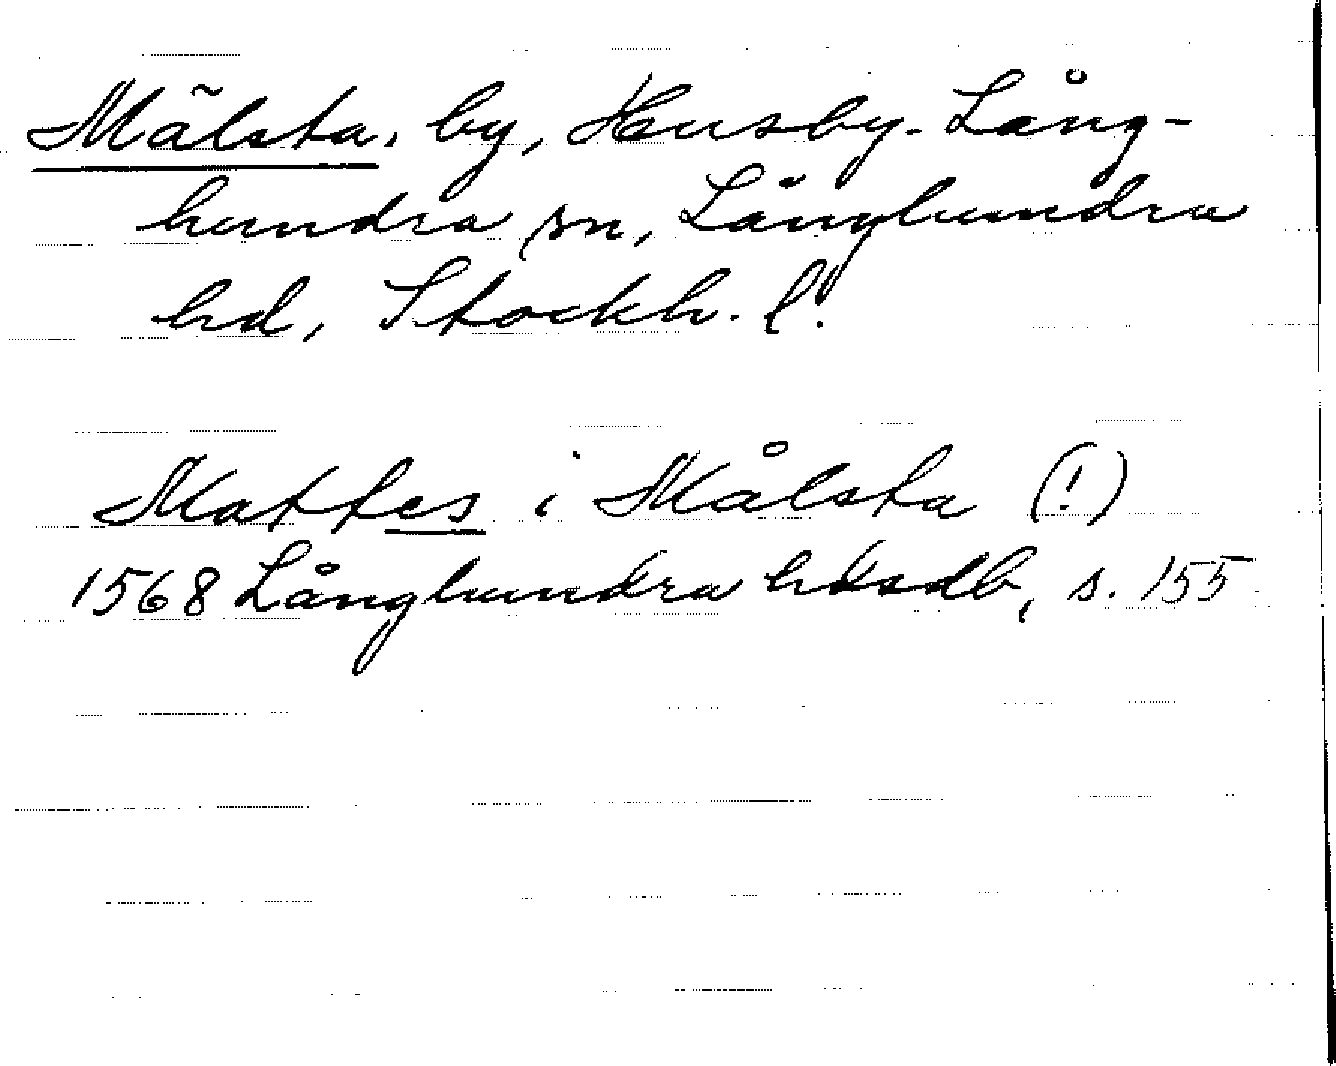 Mälsta, by, Husby-Lång-
hundra sn, Långhundra
hd, Stockh. l.
Mattes i Målsta (!)
1568 Långhundra hdsdb, s. 155